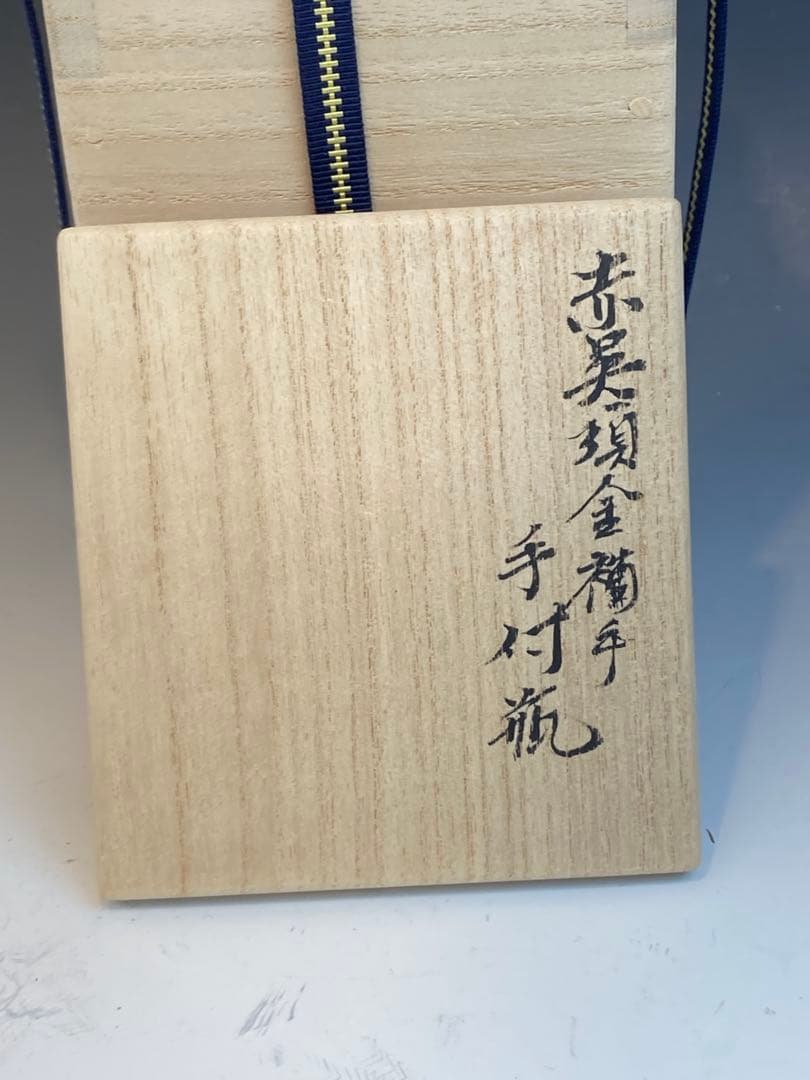 赤呉須金襴手
手付瓶